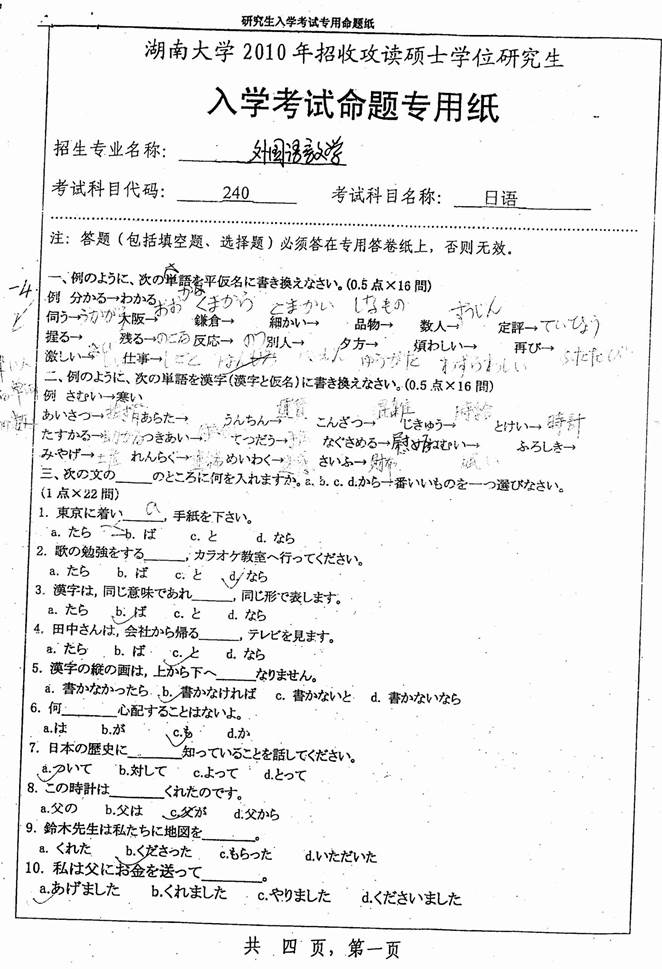 研究生入学考试专用命题纸
湖南大学 2010 年招收攻读硕士学位研究生
入学考试命题专用纸
招生专业名称： 外国语言文学
考试科目代码： 240 考试科目名称： 日语
注：答题（包括填空题、选择题）必须答在专用答卷纸上，否则无效．
一、例のように、次の単語を平仮名に書き換えなさい。(0.5点×16問)
例 分かる→わかる おお くまから こまかい しなもの
伺う→うかがう 大阪→ 鎌倉→ 細かい→ 品物→ 数人→ 定評→ていひょう
握る→ 残る→のこる 反応→ 別人→ 夕方→ 煩わしい→ 再び→
激しい→ 仕事→しごと ゆうがた わずらわしい ふたたび
二、例のように、次の単語を漢字(漢字と仮名)に書き換えなさい。(0.5点×16問)
例 さむい→寒い
あいさつ→挨拶 あらた→ うんちん→ こんざつ→ じきゅう→ とけい→時計
たすかる→ つきあい→ てつだう→ なぐさめる→慰める ねむい→ ふろしき→
みやげ→ れんらく→連絡 めいわく→ さいふ→財布
三、次の文の_____のところに何を入れますか。a. b. c. d.から一番いいものを一つ選びなさい。
(1点×22問)
1. 東京に着い__a__, 手紙を下さい。
a. たら b. ば c. と d. なら
2. 歌の勉強をする_____, カラオケ教室へ行ってください。
a. たら b. ば c. と d. なら
3. 漢字は, 同じ意味であれ_____, 同じ形で表します。
a. たら b. ば c. と d. なら
4. 田中さんは, 会社から帰る_____, テレビを見ます。
a. たら b. ば c. と d. なら
5. 漢字の縦の画は, 上から下へ_____なりません。
a. 書かなかったら b. 書かなければ c. 書かないと d. 書かないなら
6. 何_____心配することはないよ。
a.は b.が c.も d.か
7. 日本の歴史に_____知っていることを話してください。
a.ついて b.対して c.よって d.とって
8. この時計は_____くれたのです。
a.父の b.父は c.父が d.父から
9. 鈴木先生は私たちに地図を_____。
a. くれた b.くださった c.もらった d.いただいた
10. 私は父にお金を送って_____。
a.あげました b.くれました c.やりました d.くださいました
共 四 页，第一页